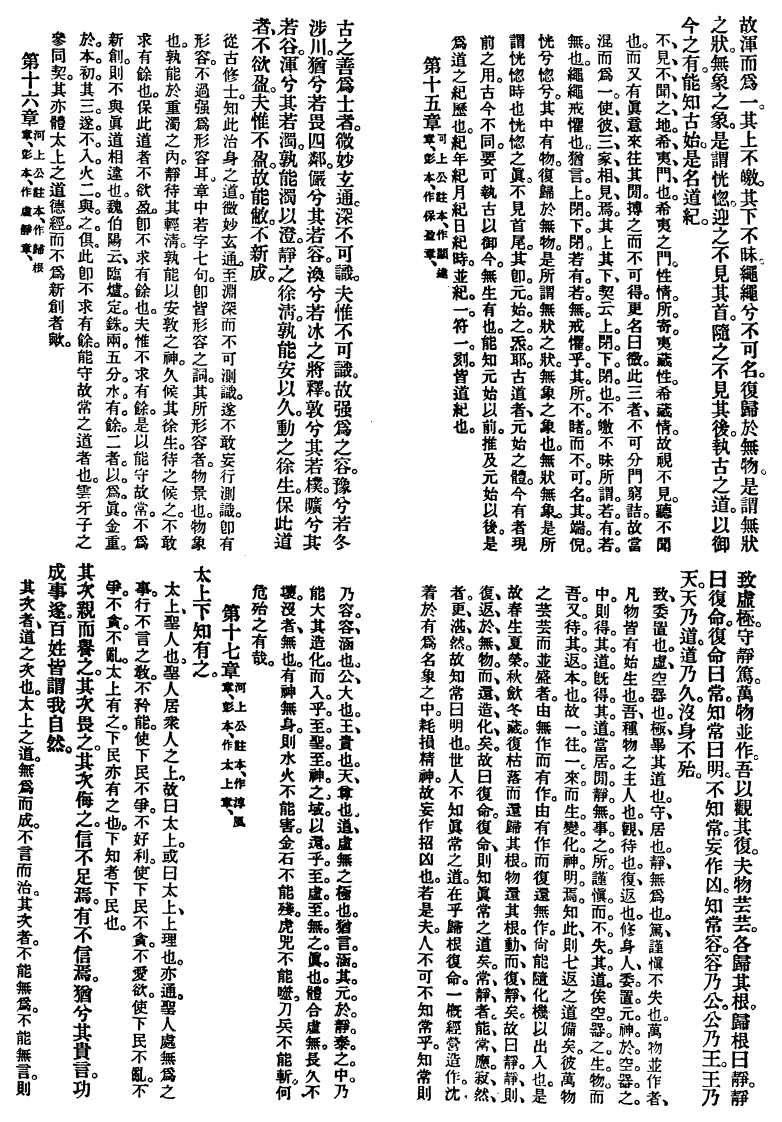 故渾而爲一其上不皦其下不昧繩繩兮不可名復歸於無物是謂無狀
之狀無象之象是謂恍惚迎之不見其首隨之不見其後執古之道以御
今之有能知古始是名道紀。
不見不聞之地希夷門也希夷之門性情所寄夷藏性希藏情故視不見聽不聞
也而又有眞意來往其閒搏之而不可得更名曰微此三者不可分門窮詰故當
混而爲一使彼三家相見焉其上其下契云上閉下閉也不皦不昧所謂若有若
無也繩繩戒懼也猶言上閉下閉若有若無戒懼乎其所不睹而不可名其端倪
恍兮惚兮其中有物復歸於無物是所謂無狀之狀無象之象也無狀無象是所
謂恍惚時也恍惚之眞不見首尾其卽元始之炁耶古道者元始之體今有者現
前之用古今不同要可執古以御今無生有也能知元始以前推及元始以後是
爲道之紀歷也紀年紀月紀日紀時並紀一符一刻皆道紀也。
第十五章 河上公註本、作顯德章、彭本、作保盈章、
古之善爲士者微妙玄通深不可識夫惟不可識故强爲之容豫兮若冬
涉川猶兮若畏四鄰儼兮其若容渙兮若冰之將釋敦兮其若樸曠兮其
若谷渾兮其若濁孰能濁以澄靜之徐淸孰能安以久動之徐生保此道
者不欲盈夫惟不盈故能敝不新成。
從古修士知此治身之道微妙玄通至淵深而不可測識遂不敢妄行測識卽有
形容不過强爲形容耳章中若字七句卽皆形容之詞其所形容者物景也物象
也孰能於重濁之內靜待其輕淸孰能以安敦之神久候其徐生待之候之不敢
求有餘也保此道者不欲盈卽不求有餘也夫惟不求有餘是以能守故常不爲
新創則不與眞道相遠也魏伯陽云臨爐定銖兩五分水有餘二者以爲眞金重
於本初其三遂不入火二與之俱此卽不求有餘能守故常之道者也雲牙子之
參同契其亦體太上之道德經而不爲新創者歟。
第十六章 河上公註本、作歸根章、彭本、作虛靜章、
致虛極守靜篤萬物並作吾以觀其復夫物芸芸各歸其根歸根曰靜靜
曰復命復命曰常知常曰明不知常妄作凶知常容容乃公公乃王王乃
天天乃道道乃久沒身不殆。
致委置也虛空器也極畢其道也守居也靜無爲也篤謹愼不失也萬物並作者、
凡物皆有始生也吾種物之主人也觀待也復返也修身人委置元神於空器之
中則得其道旣得其道當居閒靜無事之所謹愼而不失其道俟空器之生物而
吾又待其返本也故一往一來而生變化神明焉知此則七返之道備矣彼萬物
之芸芸而並盛者由無作而有作由有作而復還無作尙能隨化機以出入也是
故春生夏榮秋斂冬藏復枯落而還歸其根物還其根動而復靜矣故曰靜靜則
復返於無物而還造化矣故曰復命復命則知眞常之道矣常靜者能常應寂然
者更湛然故知常曰明也世人不知眞常之道在乎歸根復命一概經營造作沈
着於有爲名象之中耗損精神故妄作招凶也若是夫人不可不知常乎知常則
乃容容涵也公大也王貴也天尊也道虛無之極也猶言涵其元於靜泰之中乃
能大其造化而入乎至聖至神之域以還乎至虛至無之眞也體合虛無長久不
壞沒者無也有神無身則水火不能害金石不能殘虎兕不能噬刀兵不能斬何
危殆之有哉。
第十七章 河上公註本、作淳風章、彭本、作太上章、
太上下知有之。
太上聖人也聖人居衆人之上故曰太上或曰太上上理也亦通聖人處無爲之
事行不言之敎不矜能使下民不爭不好利使下民不貪不愛欲使下民不亂不
爭不貪不亂太上有之下民亦有之也下知者下民也。
其次親而譽之其次畏之其次侮之信不足焉有不信焉猶兮其貴言功
成事遂百姓皆謂我自然。
其次者道之次也太上之道無爲而成不言而治其次者不能無爲不能無言則